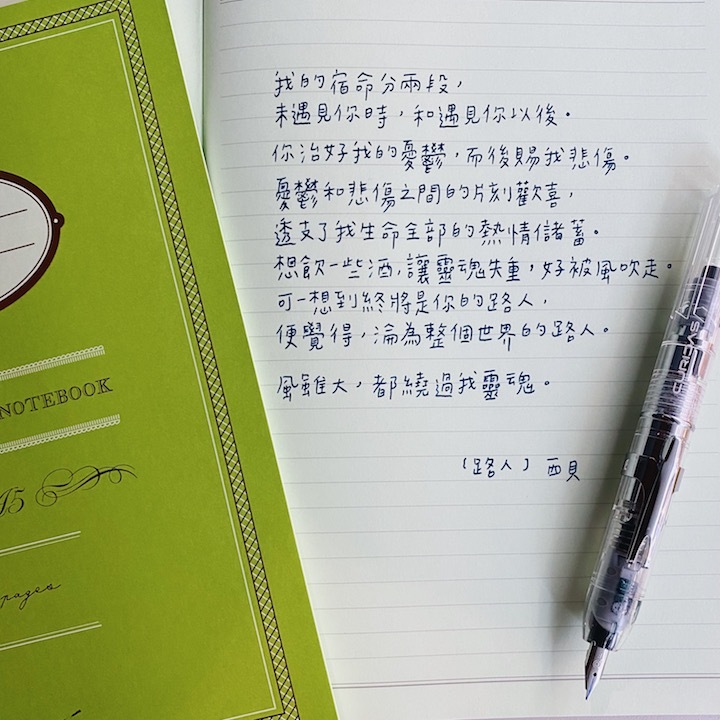 我的宿命分兩段，
未遇見你時，和遇見你以後。
你治好我的憂鬱，而後賜我悲傷。
憂鬱和悲傷之間的片刻歡喜，
透支了我生命全部的熱情儲蓄。
想飲一些酒，讓靈魂失重，好被風吹走。
可一想到終將是你的路人，
便覺得，淪為整個世界的路人。
風雖大，都繞過我靈魂。
〔路人〕西貝
NOTEBOOK
A5
pages